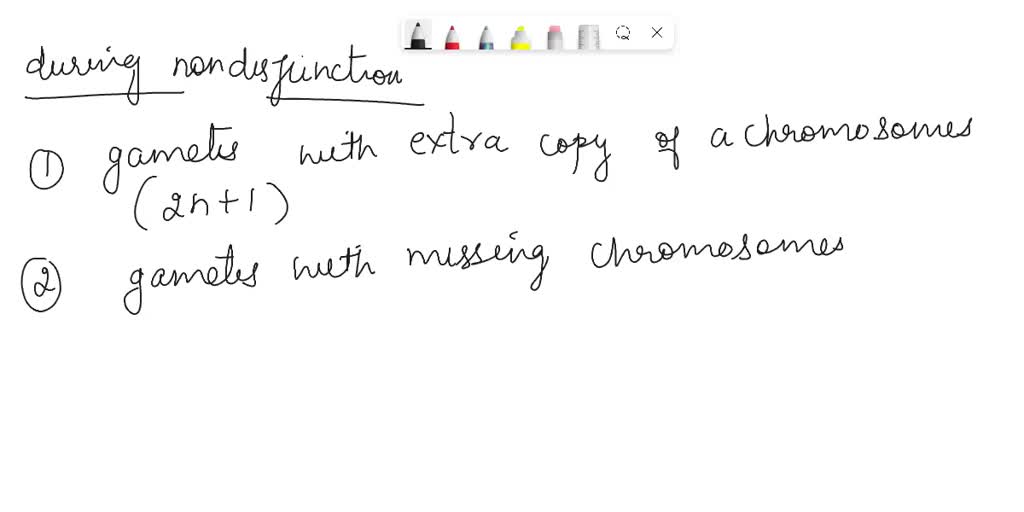 during nondisjunction
① gametes with extra copy of a chromosomes
(2n+1)
② gametes with missing chromosomes